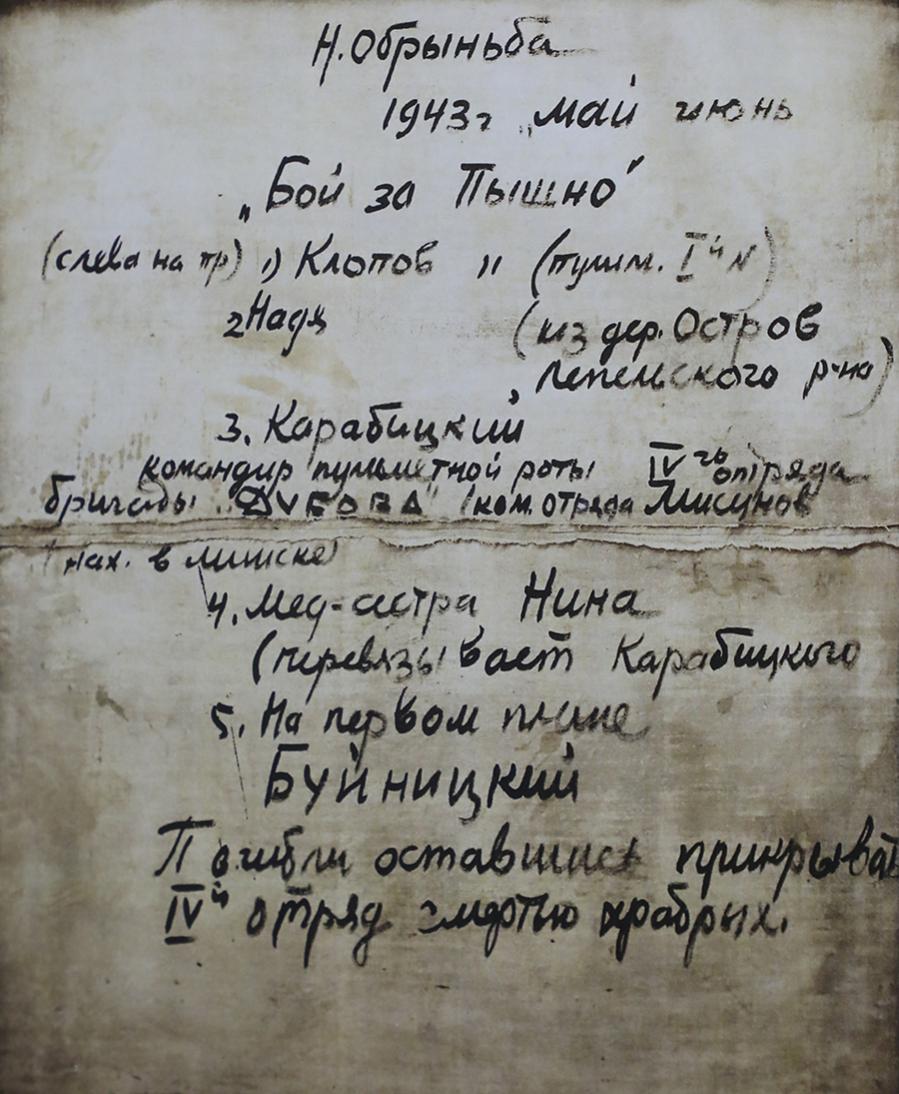 Н. Обрыньба
1943г „май июнь
„Бой за Пышно"
(слева на пр) 1) Клопов " (пулим. Iй N)
2 Надя (из дер. Остров
Лепельского р-на)
3. Карабицкий
командир пулеметной роты IVго отряда
бригады „Дубова" (ком. отряда Мисунов
(нах. в Минске)
4. Мед-сестра Нина
(перевязывает Карабицкого
5. На первом плане
Буйницкий
Погибли оставшись прикрывать
IVй отряд смертью храбрых.